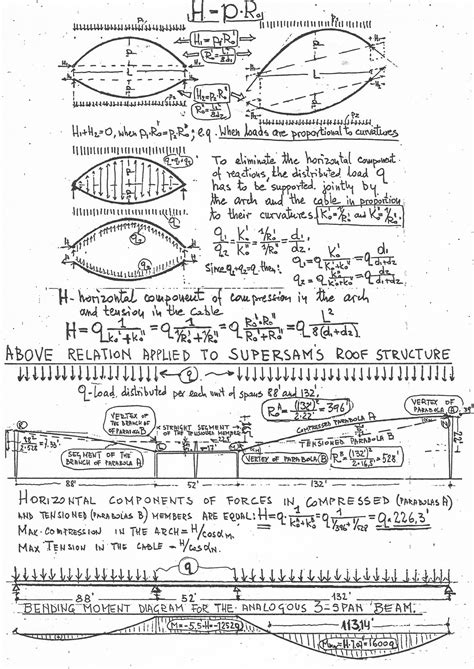 H = p·R₀
H₁ = p₁R₀'
R₀' = L²/8d₁
H₂ = p₂R₀"
R₀" = L²/8d₂
H₁+H₂=0, when p₁R₀' = p₂R₀"; e.g. When loads are proportional to curvatures
q₁+q₂=q
To eliminate the horizontal component
of reactions, the distributed load q
has to be supported jointly by
the arch and the cable in proportion
to their curvatures. K₀'=1/R₀' and K₀"=1/R₀"
q₁/q₂ = K₀'/K₀" = (1/R₀')/(1/R₀") = d₁/d₂
Since q₁+q₂=q then:
q₁ = q K₀'/(K₀'+K₀") = q d₁/(d₁+d₂)
q₂ = q K₀"/(K₀'+K₀") = q d₂/(d₁+d₂)
H - horizontal component of compression in the arch
and tension in the cable
H = q 1/(K₀'+K₀") = q 1/(1/R₀'+1/R₀") = q R₀'·R₀"/(R₀'+R₀") = q L²/8(d₁+d₂)
ABOVE RELATION APPLIED TO SUPERSAM'S ROOF STRUCTURE
q
q-Load, distributed per each unit of spans 88' and 132'.
R₀ᴬ = (132)²/2·22 = 396'
VERTEX OF PARABOLA A
VERTEX OF THE BRANCH OF PARABOLA B
STRAIGHT SEGMENT OF THE TENSIONED MEMBER
COMPRESSED PARABOLA A
TENSIONED PARABOLA B
SEGMENT OF THE BRANCH OF PARABOLA A
VERTEX OF PARABOLA B
R₀ᴮ = (132)²/2·16,5 = 528'
88' 52' 132'
HORIZONTAL COMPONENTS OF FORCES IN COMPRESSED (PARABOLAS A)
AND TENSIONED (PARABOLAS B) MEMBERS ARE EQUAL: H=q 1/(K₀ᴬ+K₀ᴮ) = q 1/(1/396+1/528) = q·226,3'
MAX COMPRESSION IN THE ARCH = H/cosαₘ
MAX TENSION IN THE CABLE - H/cosαₙ
q
88' 52' 132'
BENDING MOMENT DIAGRAM FOR THE ANALOGOUS 3-SPAN BEAM.
M=-5,5·H=-1252q
113,14'